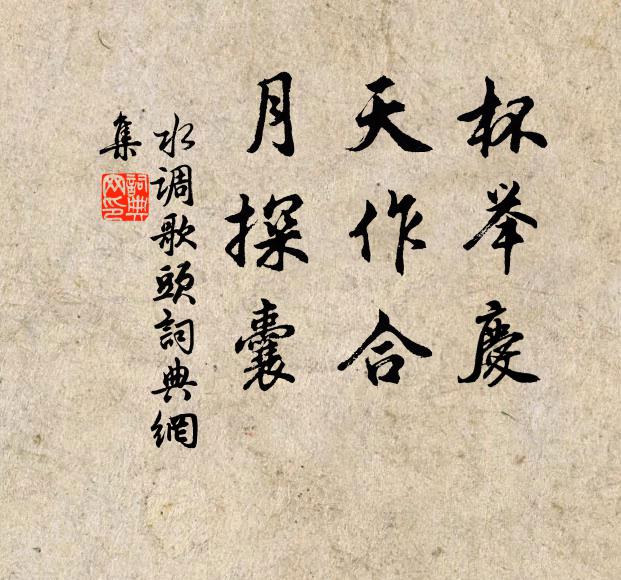 杯举慶
天作合
月探囊
水调歌頭詞典網
集
詞典
网印